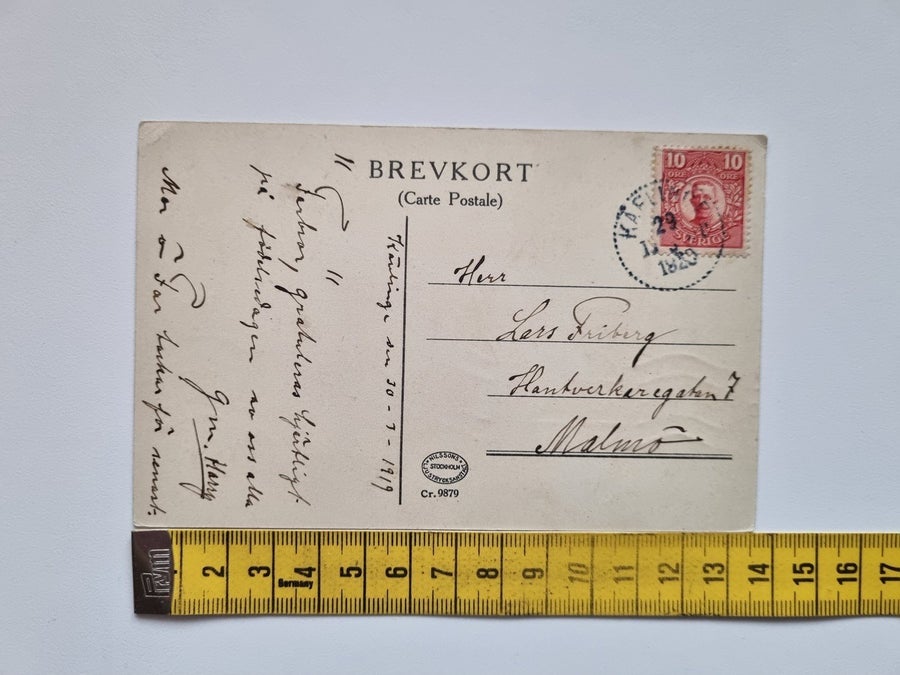 BREVKORT
(Carte Postale)
10 10
ÖRE ÖRE
SVERIGE
29
Herr
Lars Friberg
Hantverkaregatan 7
Malmö
NILSSONS
STOCKHOLM
LJUSTRYCKSANSTALT
Cr. 9879
Kävlinge den 30-3-1919
" Farbror, gratuleras hjärtligt "
på födelsedagen av oss alla
Gm. Harry
Mor o Far tackar för senast.
2 3 4 5 6 7 8 9 10 11 12 13 14 15 16 17
Germany